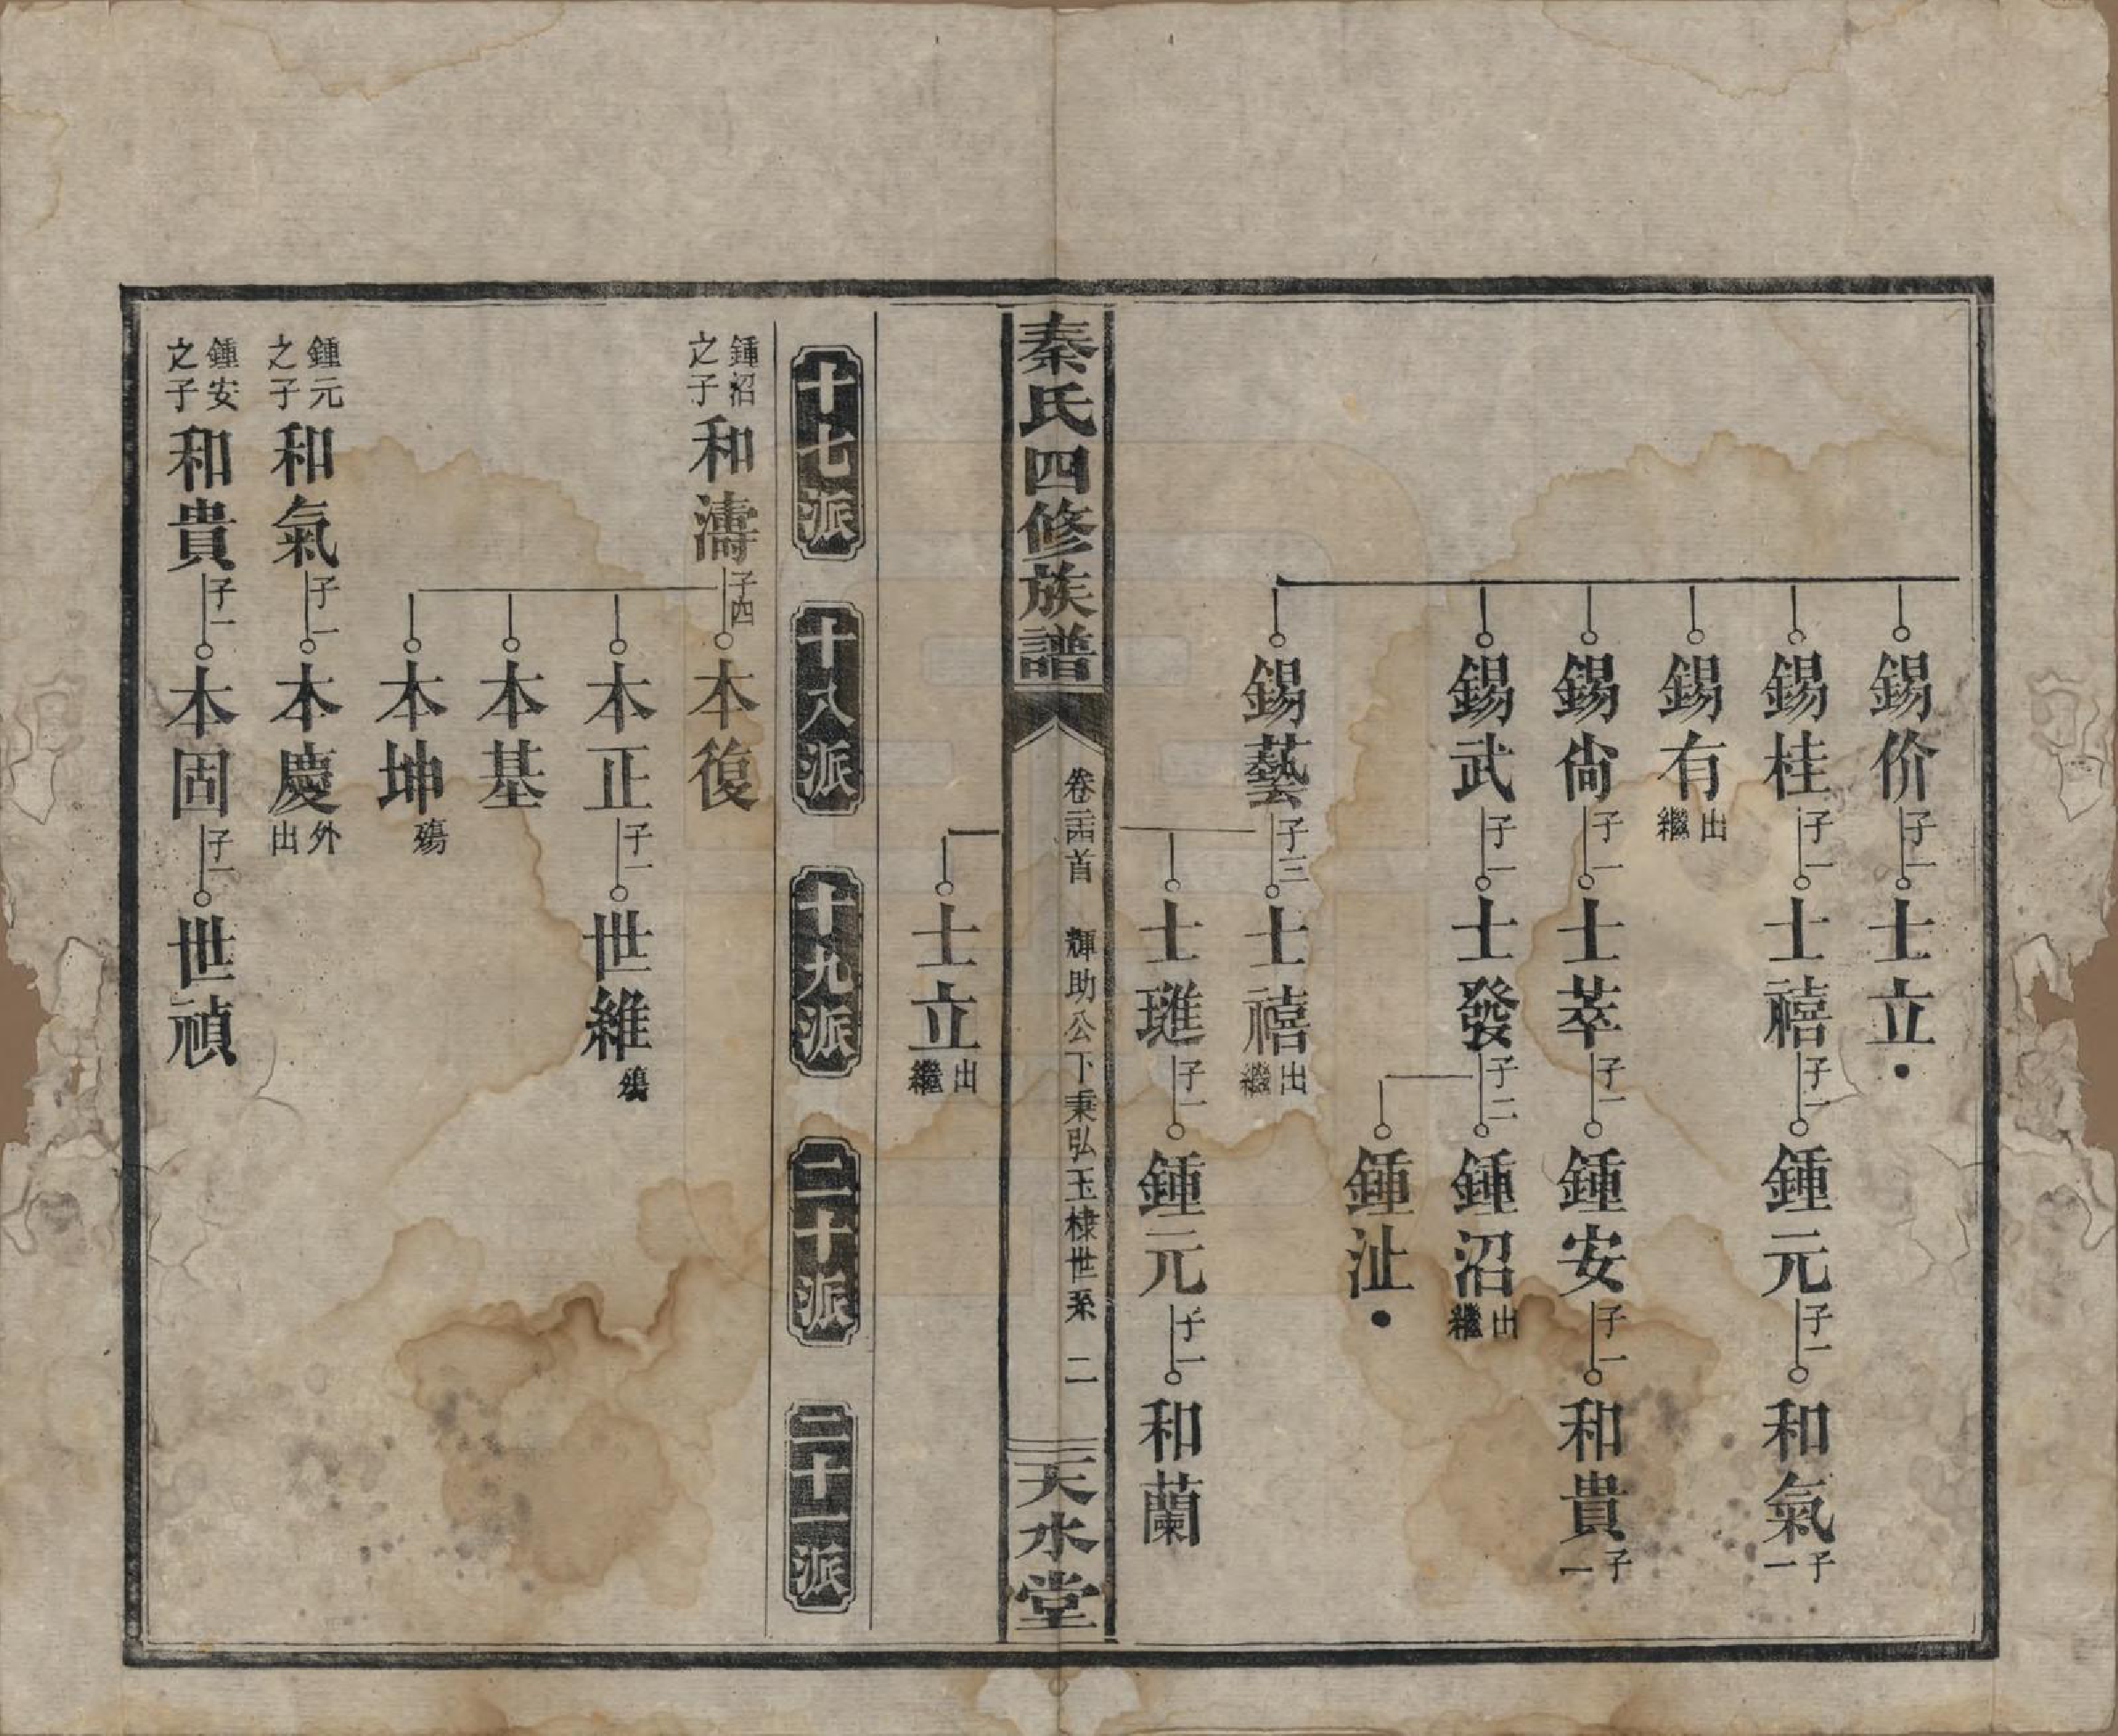 錫价 子一 士立
錫桂 子一 士禧 子一 鍾元 子一 和氣 子一
錫有 出繼
錫尙 子一 士萃 子一 鍾安 子一 和貴 子一
錫武 子一 士發 子二 鍾沼 出繼
鍾沚
錫藝 子三 士禧 出繼
士璡 子一 鍾元 子一 和蘭
秦氏四修族譜
卷首 輝助公下秉弘玉棣世系 二
天水堂
士立 出繼
十七派 十八派 十九派 二十派 二十一派
鍾沼之子 和濤 子四 本復
本正 子一 世維 殤
本基
本坤 殤
鍾元之子 和氣 子一 本慶 外出
鍾安之子 和貴 子一 本固 子一 世禎